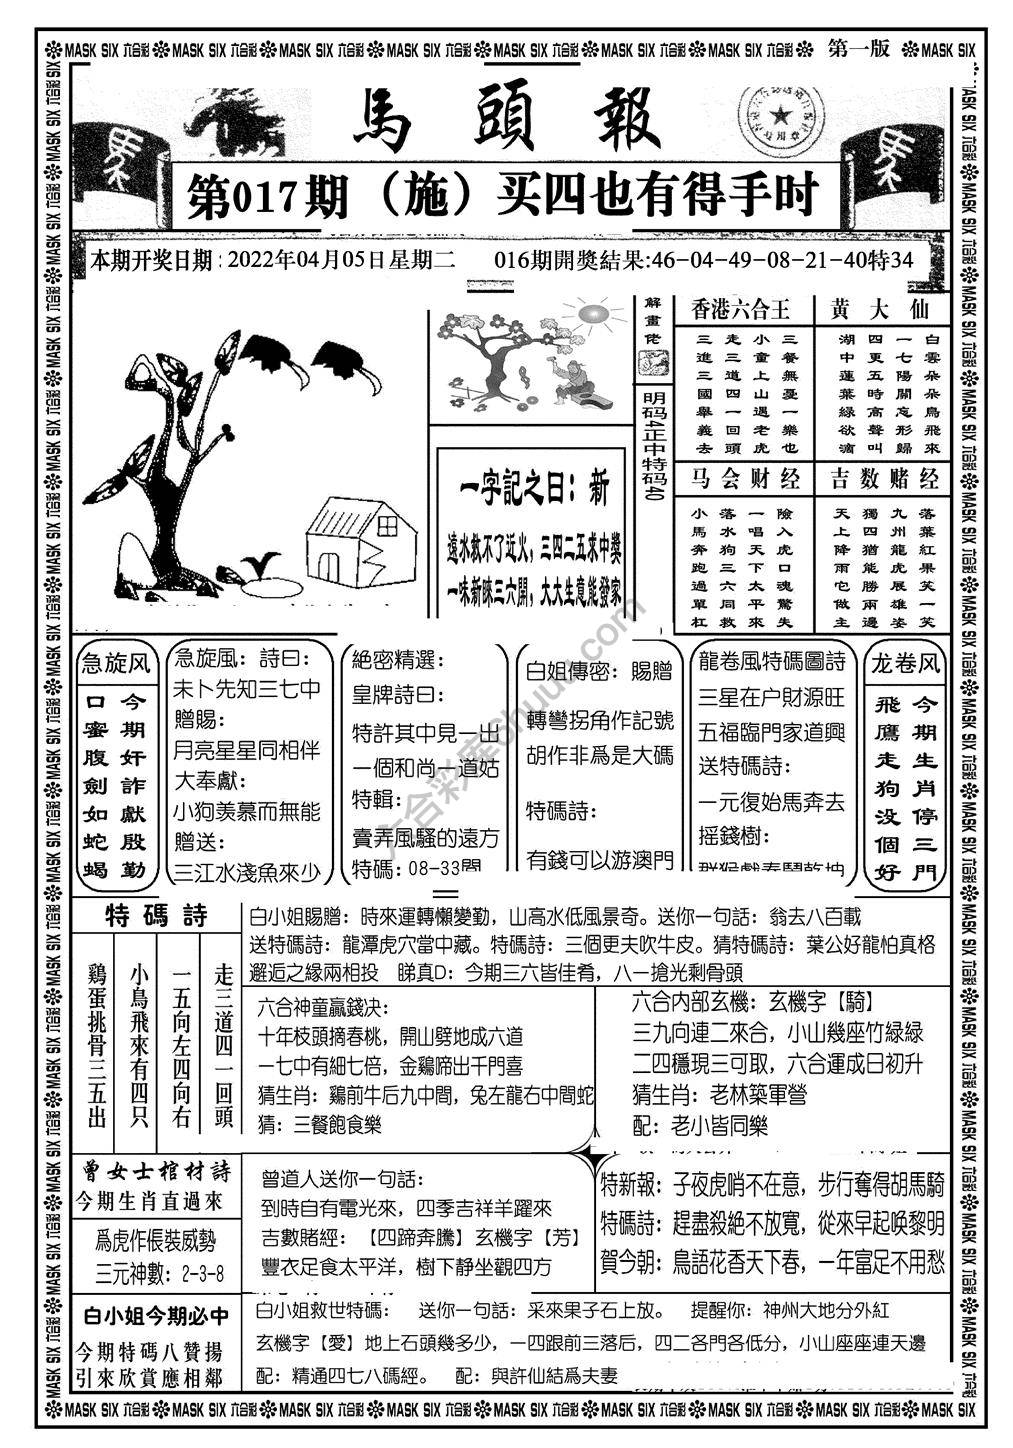 MASK SIX 六合彩 MASK SIX 六合彩 MASK SIX 六合彩 MASK SIX 六合彩 MASK SIX 六合彩 MASK SIX 六合彩 MASK SIX 六合彩 第一版 MASK SIX
馬頭報
第017期（施）买四也有得手时
本期开奖日期:2022年04月05日星期二 016期開獎結果:46-04-49-08-21-40特34
解畫佬
明码4正中特码40
一字記之日：新
遠水救不了近火，三四二五求中獎
一味新睞三六開，大大生意能發家
香港六合王
三餐無憂一樂也
小童上山遇老虎
走三道四一回頭
三進三國舉義去
黄大仙
白雲朵朵鳥飛來
一七陽關忘形歸
四更五時高聲叫
湖中蓮葉緑欲滴
马会财经
險入虎口魂驚失
一唱天下太平來
落水狗三六同救
小馬奔跑過單杠
吉数赌经
落葉紅果笑一笑
九州龍虎展雄姿
獨四猶能勝兩邊
天上降雨它做主
急旋风
今期奸詐獻殷勤
口蜜腹劍如蛇蝎
急旋風：詩曰：
未卜先知三七中
贈賜：
月亮星星同相伴
大奉獻：
小狗羡慕而無能
贈送：
三江水淺魚來少
絶密精選：
皇牌詩曰：
特許其中見一出
一個和尚一道姑
特輯：
賣弄風騷的遠方
特碼：08-33開
白姐傳密：賜贈
轉彎拐角作記號
胡作非爲是大碼
特碼詩：
有錢可以游澳門
龍卷風特碼圖詩
三星在户財源旺
五福臨門家道興
送特碼詩：
一元復始馬奔去
摇錢樹：
群猴戲春鬧乾坤
龙卷风
今期生肖停三門
飛鷹走狗没個好
特碼詩
走三道四一回頭
一五向左四向右
小鳥飛來有四只
鷄蛋挑骨三五出
白小姐賜贈：時來運轉懶變勤，山高水低風景奇。送你一句話：翁去八百載
送特碼詩：龍潭虎穴當中藏。特碼詩：三個更夫吹牛皮。猜特碼詩：葉公好龍怕真格
邂逅之緣兩相投 睇真D：今期三六皆佳肴，八一搶光剩骨頭
六合神童贏錢决：
十年枝頭摘春桃，開山劈地成六道
一七中有細七倍，金鷄啼出千門喜
猜生肖：鷄前牛后九中間，兔左龍右中間蛇
猜：三餐飽食樂
六合内部玄機：玄機字【騎】
三九向連二來合，小山幾座竹緑緑
二四穩現三可取，六合運成日初升
猜生肖：老林築軍營
配：老小皆同樂
曾女士棺材詩
今期生肖直過來
爲虎作倀裝威勢
三元神數：2-3-8
曾道人送你一句話：
到時自有電光來，四季吉祥羊躍來
吉數賭經：【四蹄奔騰】玄機字【芳】
豐衣足食太平洋，樹下静坐觀四方
特新報：子夜虎哨不在意，步行奪得胡馬騎
特碼詩：趕盡殺絶不放寬，從來早起唤黎明
賀今朝：鳥語花香天下春，一年富足不用愁
白小姐今期必中
今期特碼八贊揚
引來欣賞應相鄰
白小姐救世特碼： 送你一句話：采來果子石上放。 提醒你：神州大地分外紅
玄機字【愛】地上石頭幾多少，一四跟前三落后，四二各門各低分，小山座座連天邊
配：精通四七八碼經。 配：與許仙結爲夫妻
MASK SIX 六合彩 MASK SIX 六合彩 MASK SIX 六合彩 MASK SIX 六合彩 MASK SIX 六合彩 MASK SIX 六合彩 MASK SIX 六合彩 MASK SIX 六合彩 MASK SIX
六合彩库6huu.com